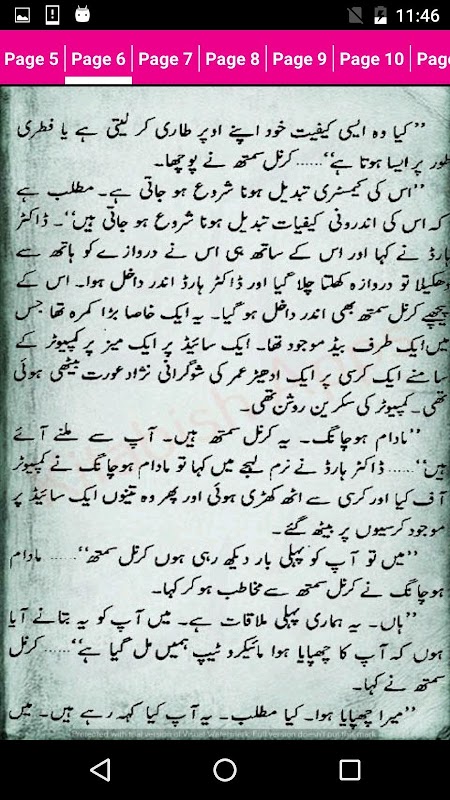 11:46
Page 5 Page 6 Page 7 Page 8 Page 9 Page 10 Page
’’کیا وہ ایسی کیفیت خود اپنے اوپر طاری کر لیتی ہے یا فطری
طور پر ایسا ہوتا ہے‘‘...... کرنل سمتھ نے پوچھا۔
’’اس کی کیمسٹری تبدیل ہونا شروع ہو جاتی ہے۔ مطلب ہے
کہ اس کی اندرونی کیفیات تبدیل ہونا شروع ہو جاتی ہیں‘‘۔ ڈاکٹر
ہارڈ نے کہا اور اس کے ساتھ ہی اس نے دروازے کو ہاتھ سے
دھکیلا تو دروازہ کھلتا چلا گیا اور ڈاکٹر ہارڈ اندر داخل ہوا۔ اس کے
پیچھے کرنل سمتھ بھی اندر داخل ہو گیا۔ یہ ایک خاصا بڑا کمرہ تھا جس
میں ایک طرف بیڈ موجود تھا۔ ایک سائیڈ پر ایک میز پر کمپیوٹر کے
سامنے ایک کرسی پر ایک ادھیڑ عمر کی شوگرانی نژاد عورت بیٹھی ہوئی
تھی۔ کمپیوٹر کی سکرین روشن تھی۔
’’مادام ہوچانگ۔ یہ کرنل سمتھ ہیں۔ آپ سے ملنے آئے
ہیں‘‘...... ڈاکٹر ہارڈ نے نرم لہجے میں کہا تو مادام ہوچانگ نے کمپیوٹر
آف کیا اور کرسی سے اٹھ کھڑی ہوئی اور پھر وہ تینوں ایک سائیڈ پر
موجود کرسیوں پر بیٹھ گئے۔
’’میں تو آپ کو پہلی بار دیکھ رہی ہوں کرنل سمتھ‘‘...... مادام
ہوچانگ نے کرنل سمتھ سے مخاطب ہو کر کہا۔
’’ہاں۔ یہ ہماری پہلی ملاقات ہے۔ میں آپ کو یہ بتانے آیا
ہوں کہ آپ کا چھپایا ہوا مائیکرو ٹیپ ہمیں مل گیا ہے‘‘...... کرنل
سمتھ نے کہا۔
’’میرا چھپایا ہوا۔ کیا مطلب۔ یہ آپ کیا کہہ رہے ہیں۔ میں
Protected with trial version of Visual Watermark. Full version doesn't put this mark.